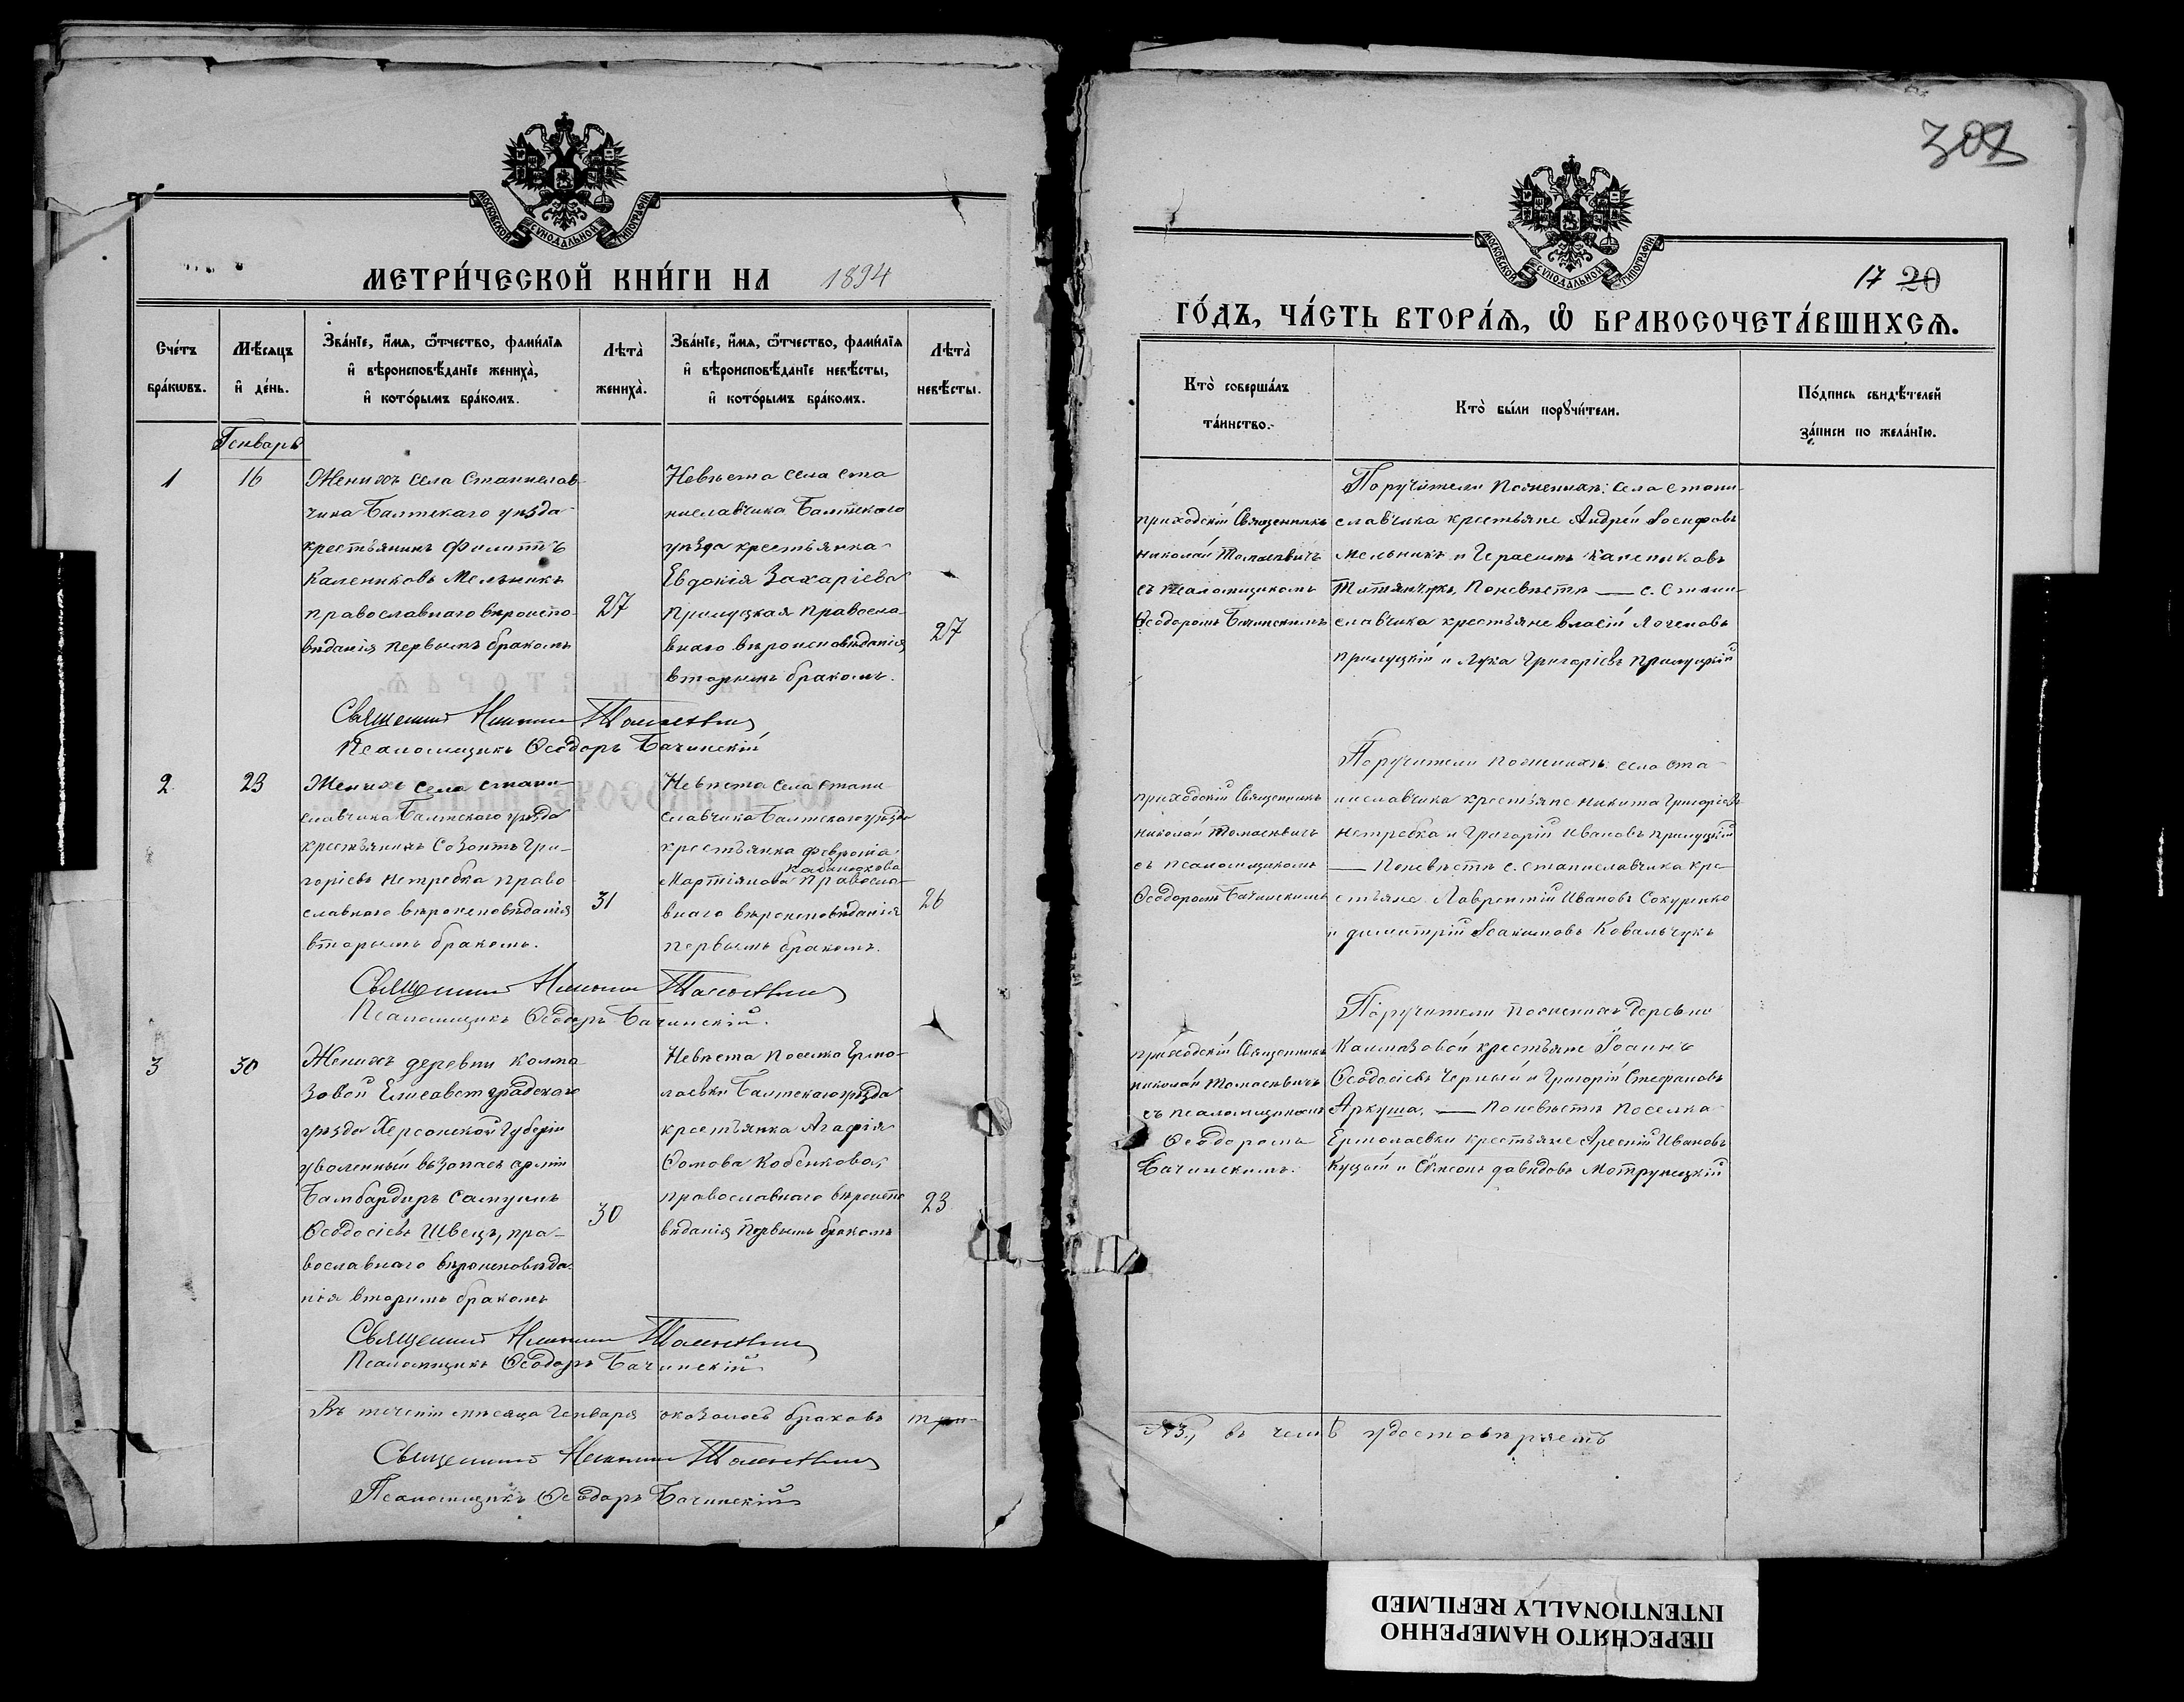 302
МОСКОВСКОЙ СѴНОДАЛЬНОЙ ТИПОГРАФІИ.
МЕТРИ́ЧЕСКОЙ КНИ́ГИ НА 1894
Сче́тъ бра́кѡвъ.
Мѣ́сяцъ и҆ де́нь.
Зва́нїе, и҆́мѧ, ѻ҆́тчество, фами́лїѧ и҆ вѣроисповѣ́данїе жениха̀, и҆ кото́рымъ бра́комъ.
Лѣта̀ жениха̀.
Зва́нїе, и҆́мѧ, ѻ҆́тчество, фами́лїѧ и҆ вѣроисповѣ́данїе невѣ́сты, и҆ кото́рымъ бра́комъ.
Лѣта̀ невѣ́сты.
Генварь
1
16
Женихъ села Станислав-
чика Балтскаго уѣзда
крестьянинъ Филиппъ
Калениковъ Мельникъ
православнаго вѣроиспо-
вѣданія первымъ бракомъ
27
Невѣста села Ста
ниславчика Балтскаго
уѣзда крестьянка
Евдокія Захаріева
Прилуцкая правосла-
внаго вѣроисповѣданія,
вторымъ бракомъ.
27
Священникъ Николай Томасевичъ
Псаломщикъ Ѳеодоръ Бачинскій
2
23
Женихъ села Стани-
славчика Балтскаго уѣзда
крестьянинъ Созонтъ Гри-
горіевъ Нетребка право
славнаго вѣроисповѣданія
вторымъ бракомъ.
31
Невѣста села Стани
славчика Балтскаго уѣзда
крестьянка Февронія
Мартіянова правосла-
внаго вѣроисповѣданія
первымъ бракомъ.
26
Священникъ Николай Томасевичъ
Псаломщикъ Ѳеодоръ Бачинскій.
3
30
Женихъ деревни Колма
зовой Елисаветградскаго
уѣзда Херсонской Губерніи
уволенный въ запасъ арміи
Бамбардиръ Самуилъ
Ѳеодосіевъ Швецъ, пра-
вославнаго вѣроисповѣда-
нія вторымъ бракомъ
30
Невѣста поселка Ермо-
лаевки Балтскаго уѣзда
крестьянка Агафія
Ѳомова Кобенкова,
православнаго вѣроиспо
вѣданія первымъ бракомъ
23
Священникъ Николай Томасевичъ
Псаломщикъ Ѳеодоръ Бачинскій
Въ теченіи мѣсяца Генваря оказалось браковъ три
Священникъ Николай Томасевичъ
Псаломщикъ Ѳеодоръ Бачинскій
МОСКОВСКОЙ СѴНОДАЛЬНОЙ ТИПОГРАФІИ.
17 20
ГО́ДЪ, ЧА́СТЬ ВТОРА́Ѧ, Ѡ҆ БРАКОСОЧЕТА́ВШИХСѦ.
Кто̀ соверша́лъ та́инство.
Кто̀ бы́ли порꙋчи́тели.
По́дпись свидѣ́телей за́писи по жела́нїю.
приходскій Священникъ
Николай Томасевичъ
съ псаломщикомъ
Ѳеодоромъ Бачинскимъ
Поручители по женихѣ: села Стани-
славчика крестьяне Андрей Іосифовъ
Мельникъ и Герасимъ Калениковъ
Титянчукъ, по невѣстѣ — с. Стани-
славчика крестьяне Власій Логеновъ
Прилуцкій и Лука Григоріевъ Прилуцкій
приходскій Священникъ
Николай Томасевичъ
съ псаломщикомъ
Ѳеодоромъ Бачинскимъ
Поручители по женихѣ: села Ста-
ниславчика крестьяне Никита Григоріевъ
Нетребка и Григорій Ивановъ Прилуцкій
— По невѣстѣ с. Станиславчика кре-
стьяне Лаврентій Ивановъ Сокуренко
и Димитрій Іоакимовъ Ковальчукъ
приходскій Священникъ
Николай Томасевичъ
съ псаломщикомъ
Ѳеодоромъ
Бачинскимъ.
Поручители по женихѣ деревни
Калмазовой крестьяне Іоаннъ
Ѳеодосіевъ Черный и Григорій Стефановъ
Аркуша, — По невѣстѣ поселка
Ермолаевки крестьяне Арсеній Ивановъ
Куцый и Симеонъ Давидовъ Мотрунецкій
№ 3, въ чемъ удостовѣряетъ
ПЕРЕСНЯТО НАМЕРЕННО
INTENTIONALLY REFILMED